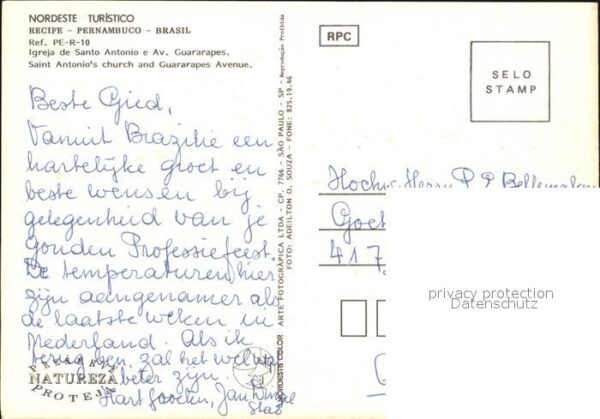 NORDESTE TURÍSTICO
RECIFE - PERNAMBUCO - BRASIL
Ref. PE-R-10
Igreja de Santo Antonio e Av. Guararapes.
Saint Antonio's church and Guararapes Avenue.
Beste Gied,
Vanuit Brazilie een
hartelijke groet en
beste wensen bij
gelegenheid van je
gouden Professiefeest.
De temperaturen hier
zijn aangenamer als
de laatste weken in
Nederland. Als ik
terug ben, zal het wel wat
beter zijn.
Hart groeten, Jan
PRESERVE
NATUREZA
PROTEJA
NORDESTE COLOR ARTE FOTOGRAFICA LTDA - CP. 7766 - SÃO PAULO - SP - Reprodução Proibida
FOTO: ADEILTON O. SOUZA - FONE: 825.19.46
RPC
SELO
STAMP
Hochw. Herrn P. P.
Goch
417
privacy protection
Datenschutz